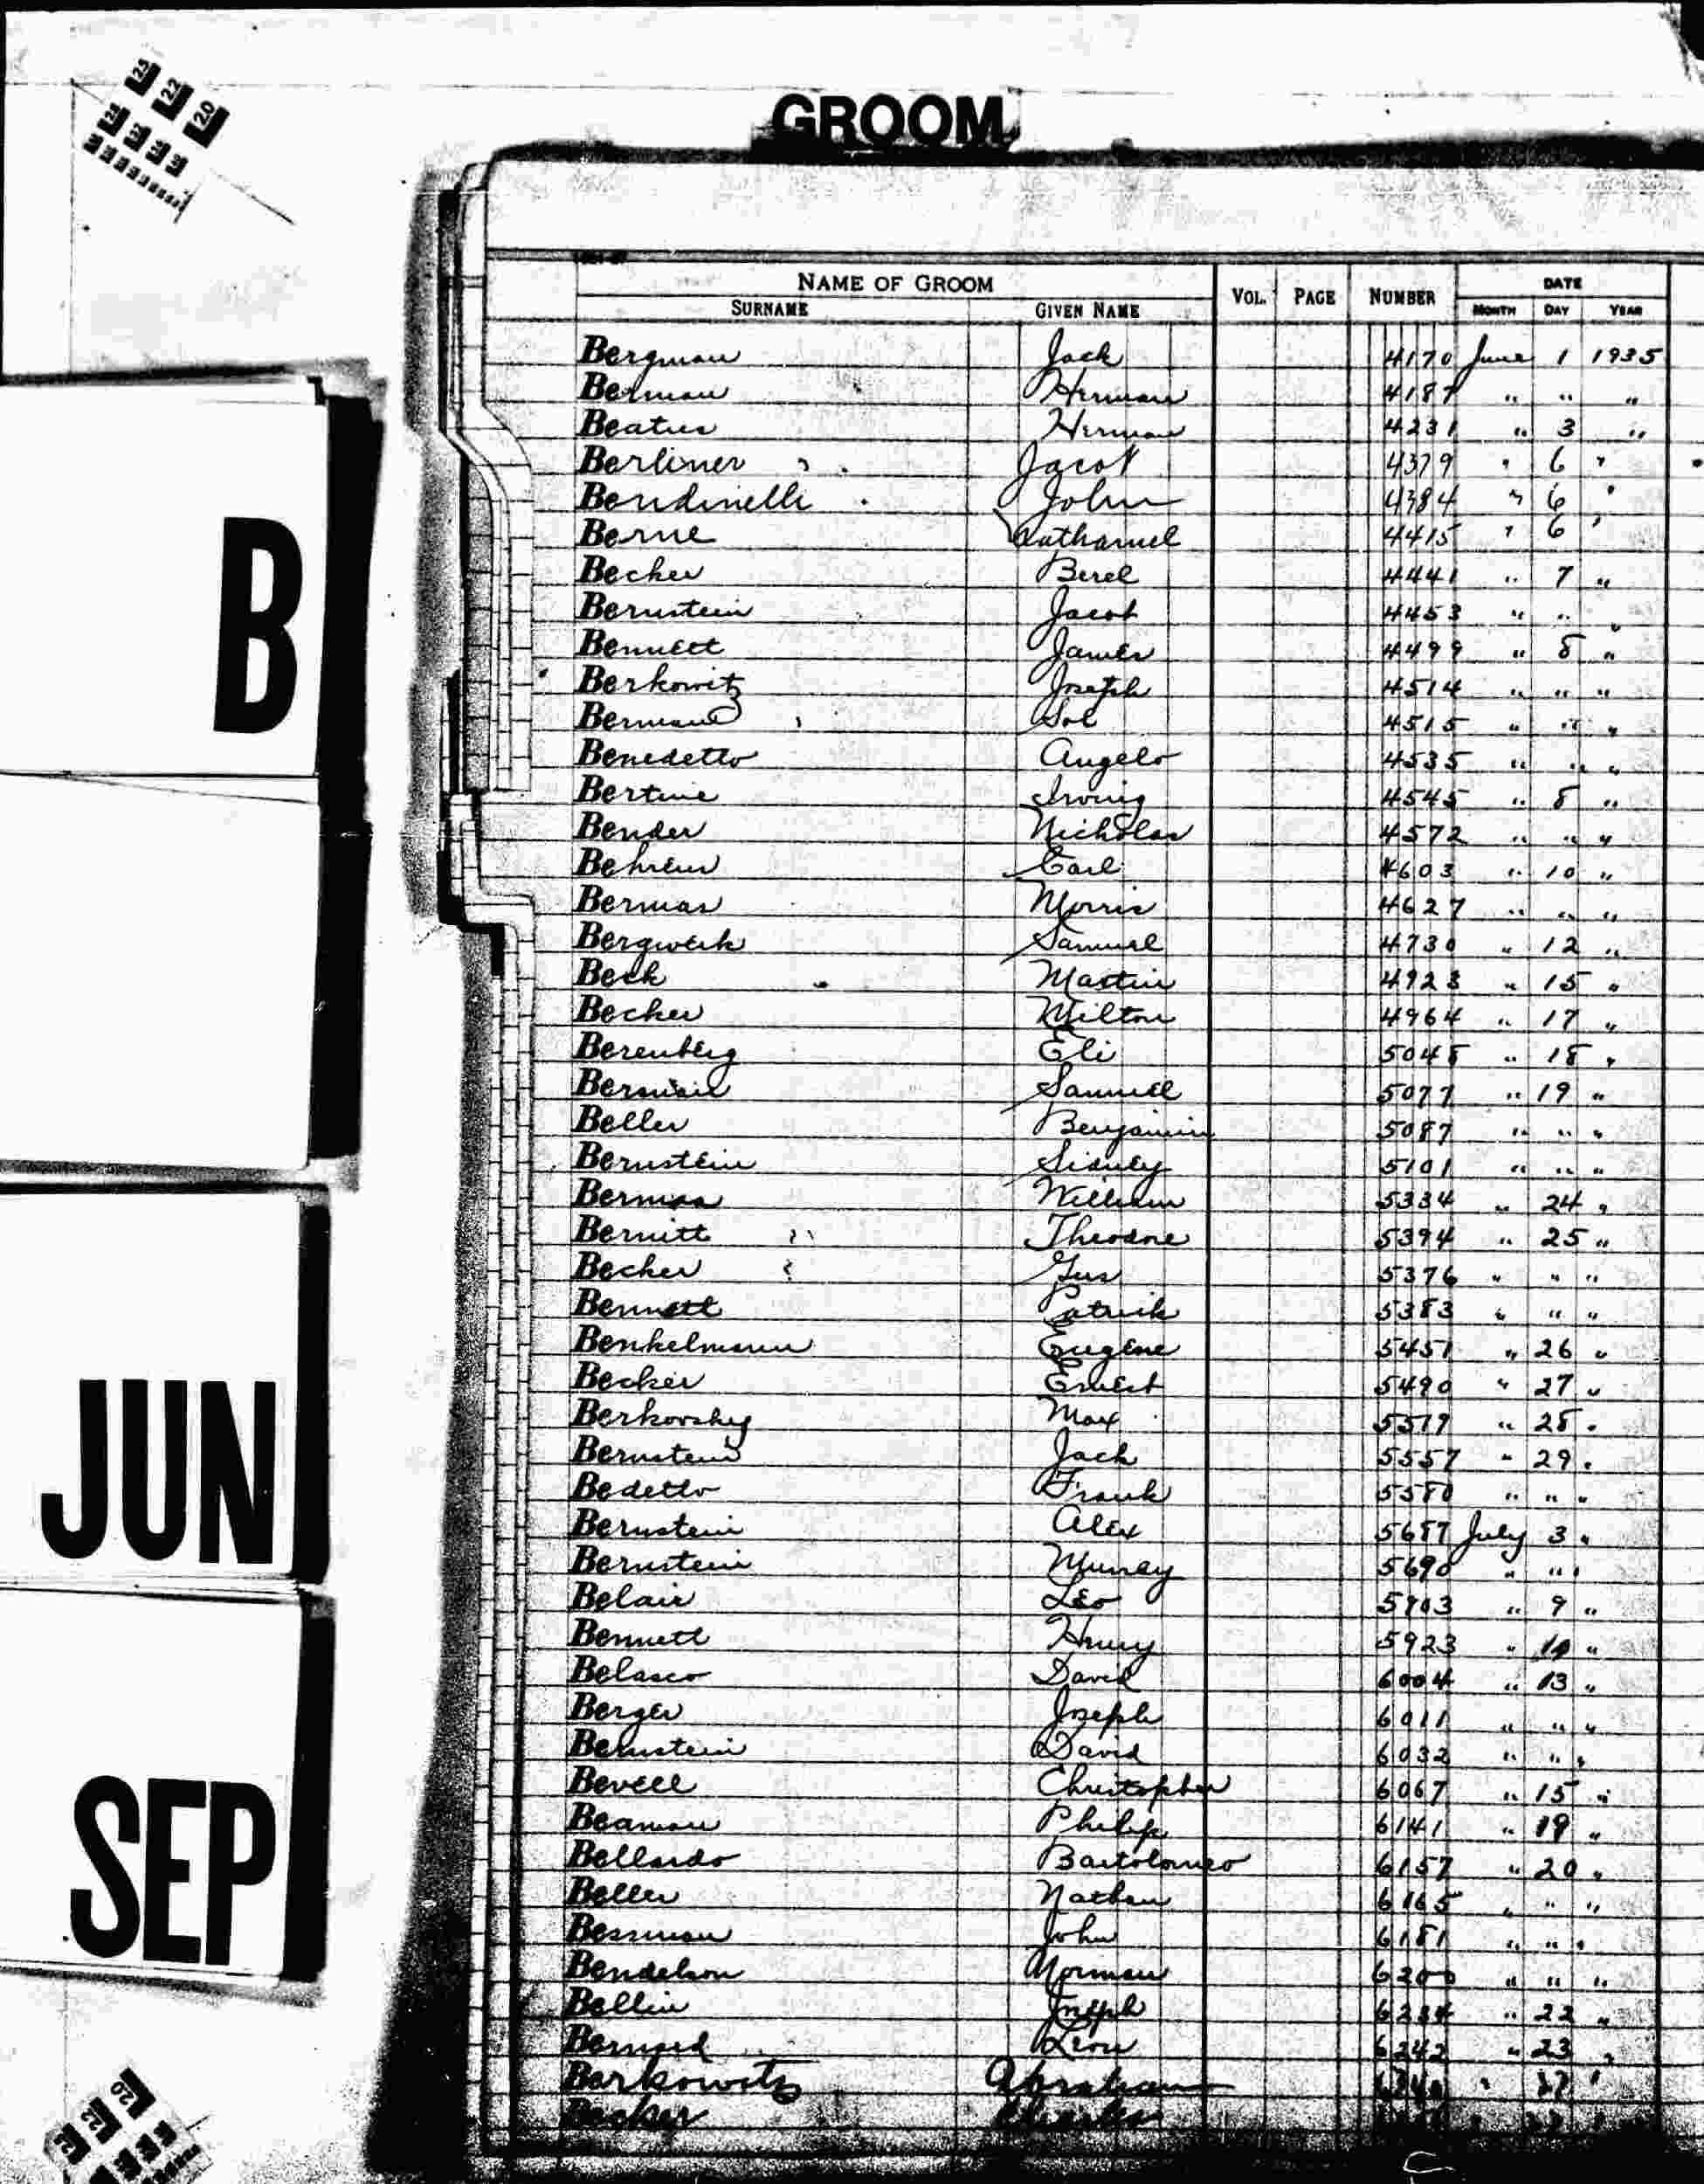 GROOM
25 22 20
NAME OF GROOM VOL. PAGE NUMBER DATE
SURNAME GIVEN NAME MONTH DAY YEAR
Bergman Jack 4170 June 1 1935
Berman Herman 4187 " " "
Herman 4231 " 3 "
Berliner Jacob 4379 " 6 "
Bendinelli John 4384 " 6 "
Berne Nathaniel 4415 " 6 "
Becker Berel 4441 " 7 "
Bernstein Jacob 4453 " " "
Bennett James 4499 " 8 "
Berkowitz Joseph 4514 " " "
Berman Sol 4515 " " "
Benedetto Angelo 4535 " " "
Bertine Irving 4545 " 8 "
Bender Nicholas 4572 " " "
Behrens Carl 4603 " 10 "
Berman Morris 4627 " " "
Bergwerk Samuel 4730 " 12 "
Beck Martin 4923 " 15 "
Becker Milton 4964 " 17 "
Berenberg Eli 5048 " 18 "
Berman Samuel 5077 " 19 "
Beller Benjamin 5087 " " "
Bernstein Sidney 5101 " " "
Berman William 5334 " 24 "
Bernitt Theodore 5394 " 25 "
Becker Gus 5376 " " "
Bennett Patrick 5383 " " "
Benkelmann Eugene 5451 " 26 "
Becker Ernest 5490 " 27 "
Berkovsky Max 5519 " 28 "
Bernstein Jack 5557 " 29 "
Bedetto Frank 5580 " " "
Bernstein Alex 5687 July 3 "
Bernstein Murray 5690 " " "
Belair Leo " 9 "
Bennett Henry 5923 " 10 "
Belasco David 6004 " 13 "
Berger Joseph 6011 " " "
Bernstein David 6032 " " "
Bevell Christopher 6067 " 15 "
Beaman Philip 6141 " 19 "
Bellardo Bartolomeo 6157 " 20 "
Beller Nathan 6165 " " "
Bessman John 6181 " " "
Bendelson Norman 6200 " " "
Bellin Joseph 6234 " 22 "
Bernard Leon 6242 " 23 "
Berkowitz Abraham
Becker Charles
B
JUN
SEP